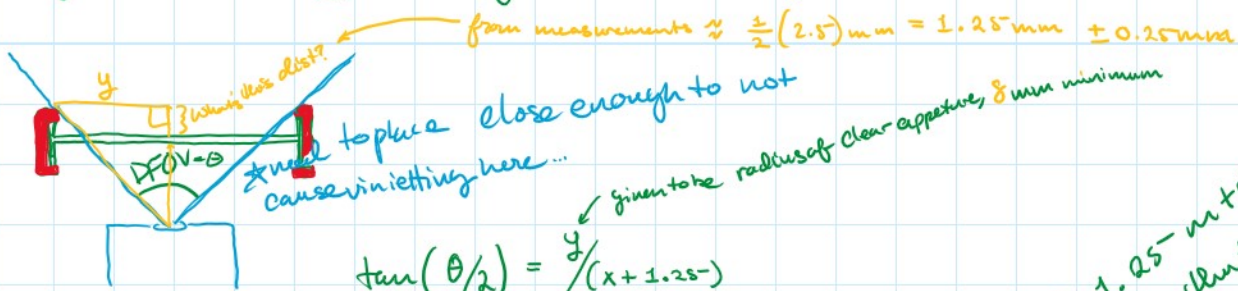 from measurements ≈ 1/2 (2.5) mm = 1.25 mm ± 0.25 mm
y
} What is this dist?
DFOV=θ
* need to place close enough to not
cause vinietting here...
given to be radius of clear appeture, 8 mm minimum
tan(θ/2) = y/(x + 1.25)
1.25 m